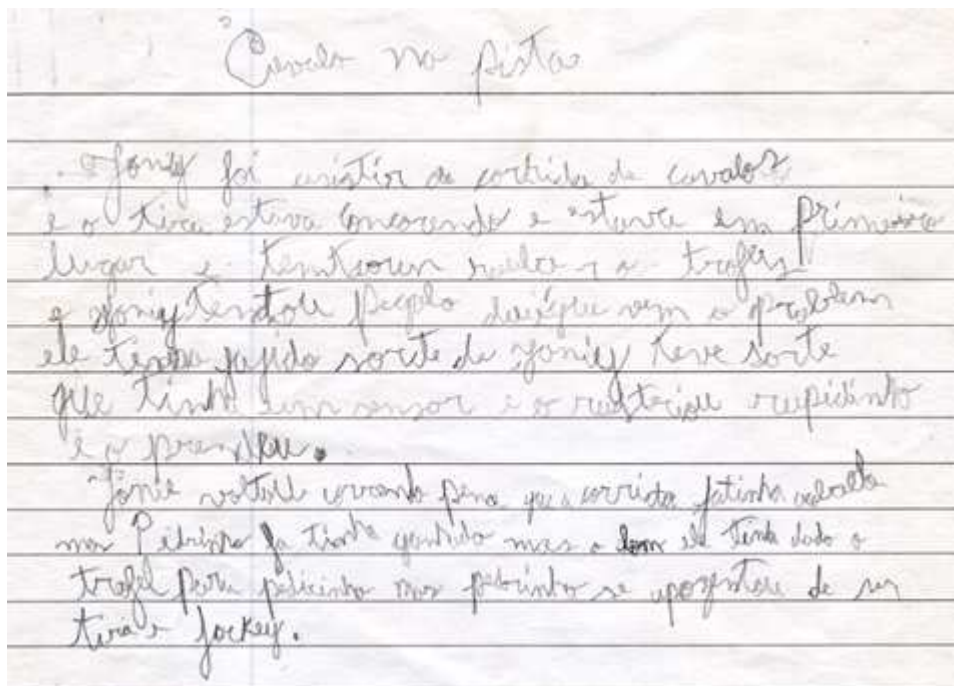 Cavalo na pista
Joniy foi asistir a corrida de cavalos
e o tira estava concorendo e estava em primeiro
lugar e roubar o trofeu
e Joniy pegalo vem o problema
ele tinha fujido sorte de Joniy teve sorte
que tinha um sensor e o rastriou rapidinho
e o prendeu.
Jonie voltou correndo pena que a corrida jatinha acabado
mas Pedrinho ja tinha ganhado mas o bom ele tinha dado o
trofeu para mas pedrinho se aposentou de ser
tira e jockey.